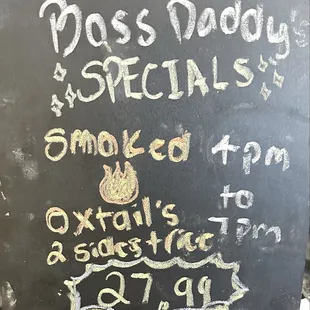 Boss Daddy's
SPECIALS
Smoked
Oxtail's
2 sides + rice
4pm
to
7pm
27.99